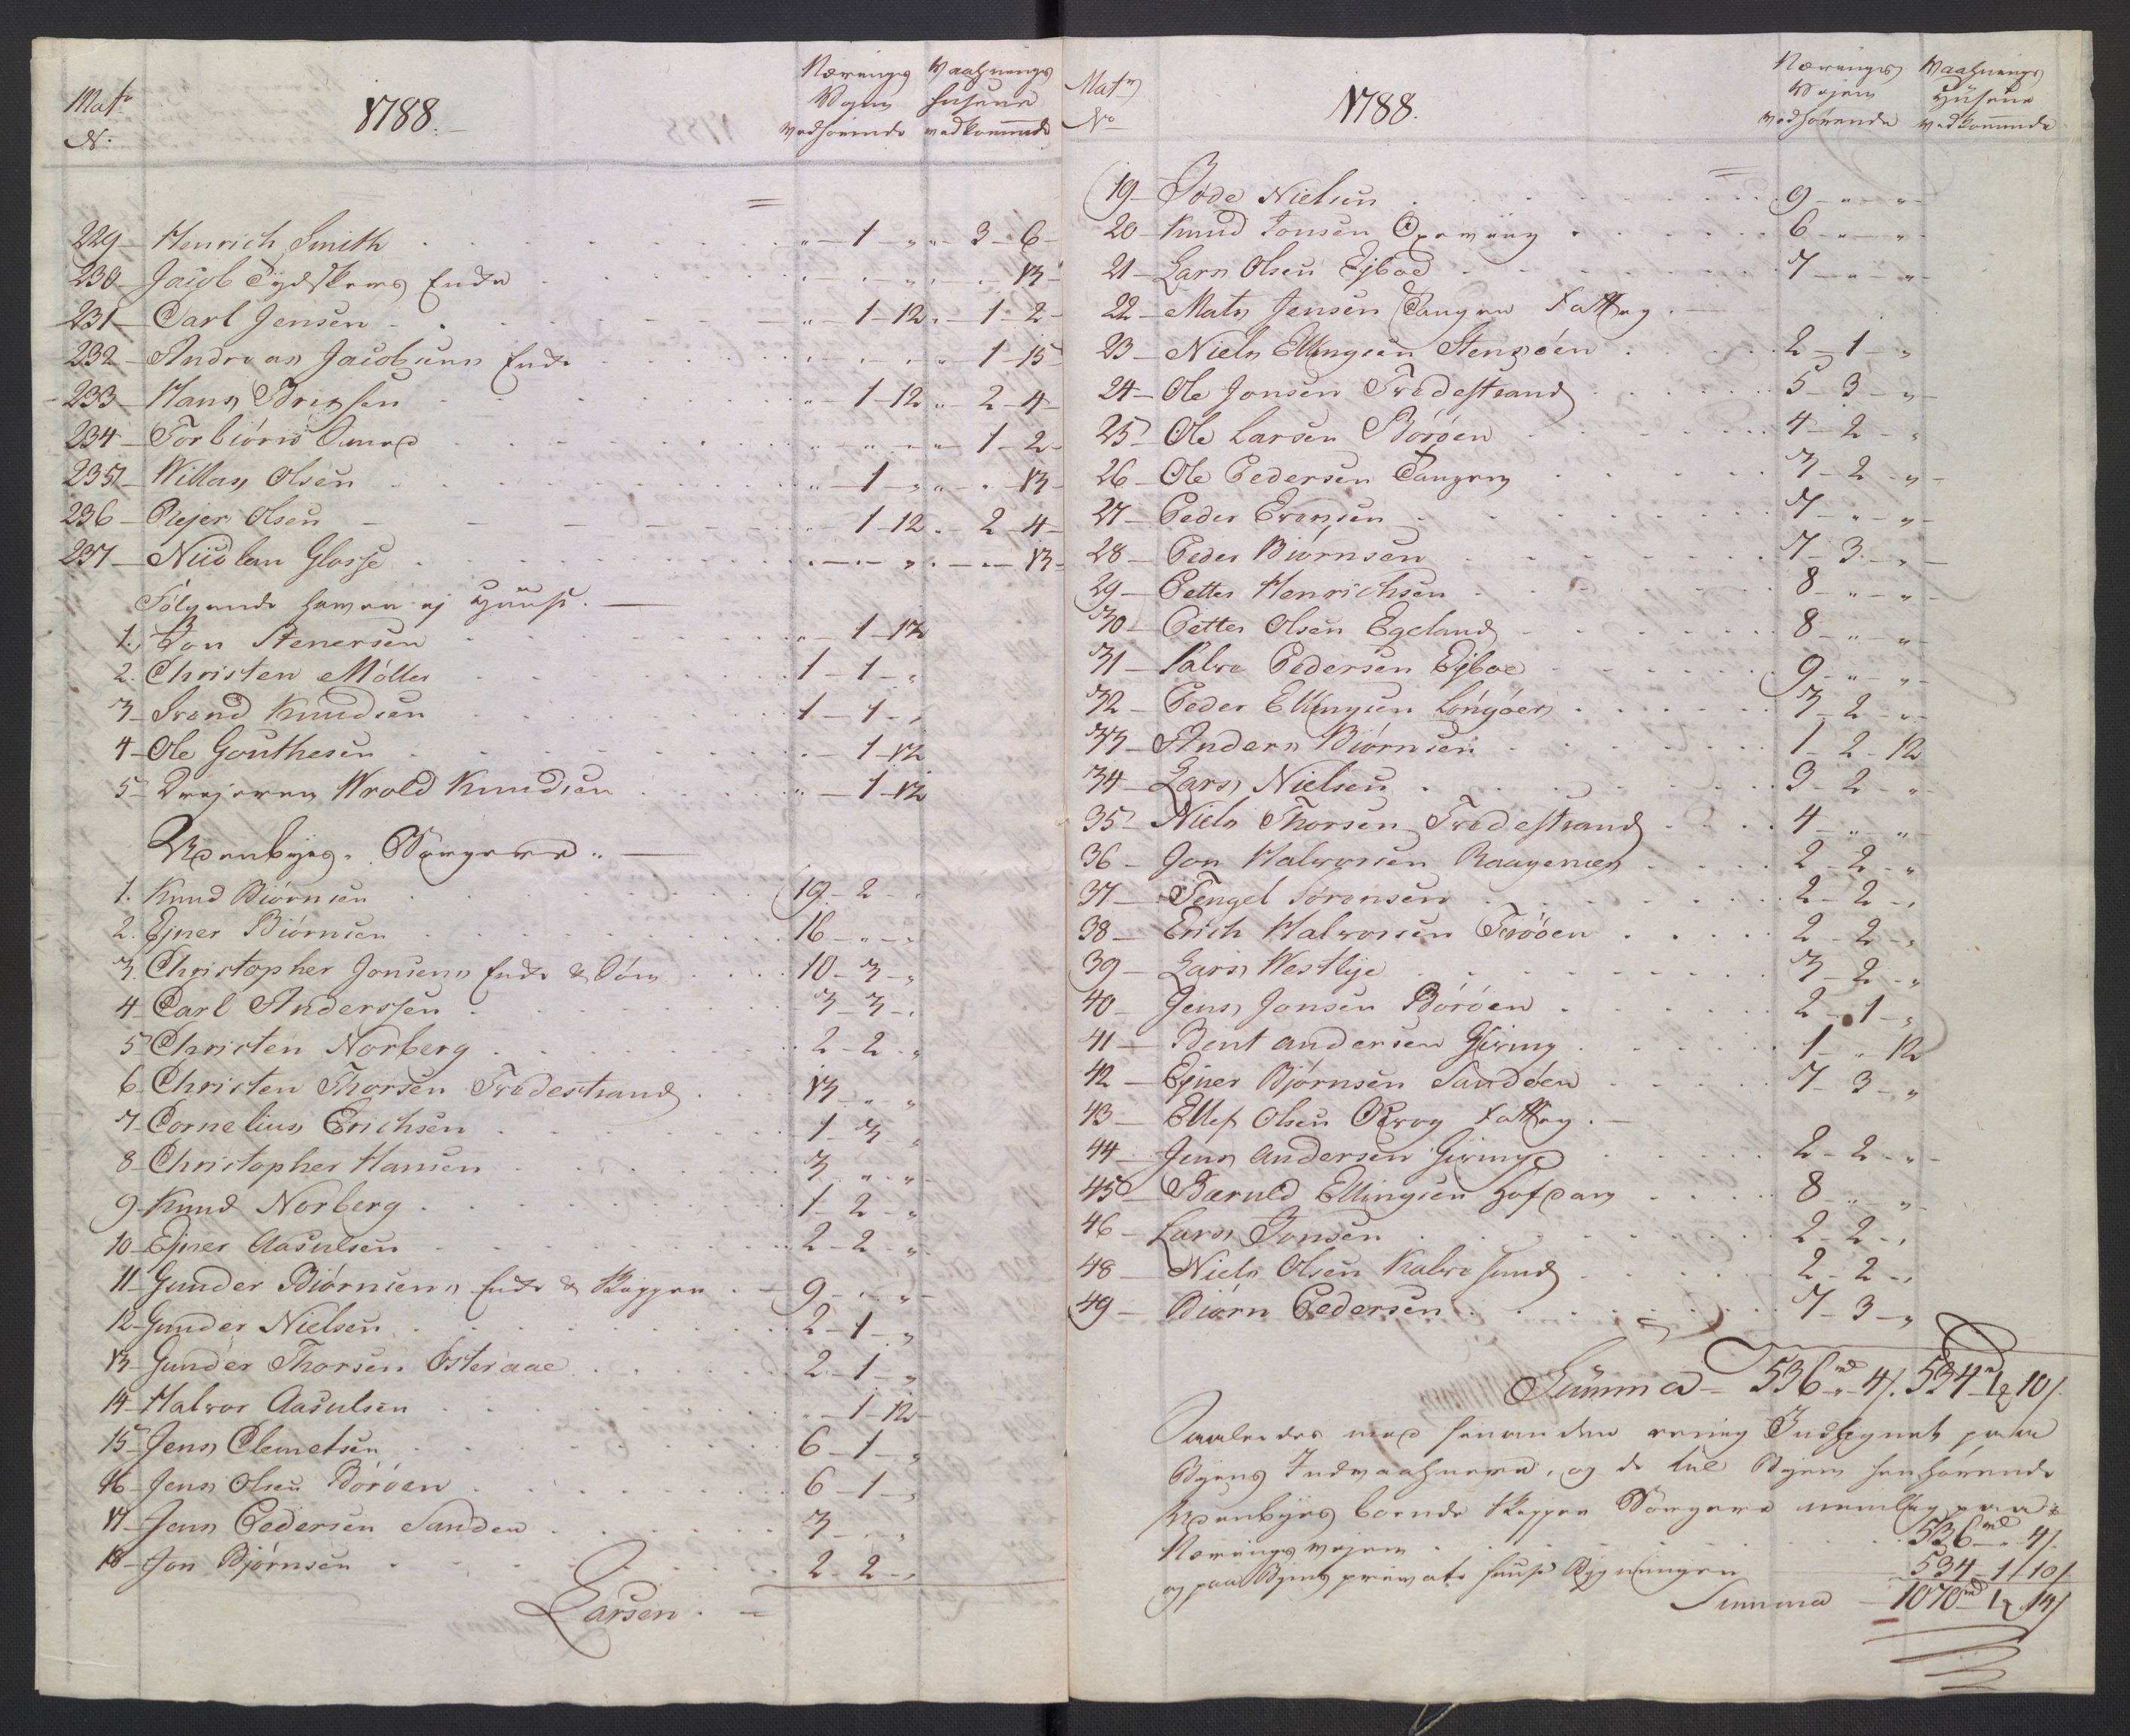 Matr
No.
1788.
Nærings Vaahnings
Vejen Husene
vedhörende vedkommende
229 – Henrich Smith „ – 1 – „ „ – 3 – 6 –
230 – Jacob Tydskers Enke „ – „ – „ „ – „ – 13 –
231 – Carl Jensen „ – 1 – 12 „ – 1 – 2 –
232 – Andreas Jacobsens Enke „ – „ – „ „ – 1 – 15
233 – Hans „ – 1 – 12 „ – 2 – 4 –
234 – Torbiörn „ – „ – „ „ – 1 – 2 –
235 – Willas Olsen „ – 1 – „ „ – „ – 13 –
236 – Rejer Olsen „ – 1 – 12 „ – 2 – 4 –
237 – Nicolau Glosse „ – „ – „ „ – „ – 13 –
Fölgende haver ej Huuse. –
1. Jon Stenersen „ – 1 – 12
2. Christen Möller 1 – 1 – „
3 – Svend Knudsen 1 – 1 – „
4 – Ole Gouthesen „ – 1 – 12
5 – Drejeren Wrold Knudsen „ – 1 – 12
Udenbyes Borgere. –
1. Knud Biörnsen 19 – 2 – „
2. Ejner Biörnsen 16 – „ – „
3. Christopher Jonsens Enke & Sön 10 – 3 – „
4 – Carl Anderssen 3 – 3 – „
5 – Christen Norberg 2 – 2 – „
6 – Christen Thorsen Tvedestrand 13 – „ – „
7 – Cornelius Erichsen 1 – 3 „
8 – Christopher Hansen 3 – „ – „
9 – Knud Norberg 1 – 2 – „
10 – Ejner Aasulsen 2 – 2 – „
11 – Gunder Biörnsens Enke & Skipper 9 – „ – „
12 – Gunder Nielsen 2 – 1 – „
13 – Gunder Thorsen Österaae 2 – 1 – „
14 – Halvor Aasulsen „ – 1 – 12 –
15 – Jens Clemetsen 6 – 1 – „
16 – Jens Olsen Böröen 6 – 1 – „
17 – Jens Pedersen Sanden 3 – „ – „
18 – Jon Bjørnsen 2 – 2 – „
Larsen. –
Matr
No
1788.
Nærings Vaahnings
Vejen Husene
vedhörende vedkommende
19 – Jöde Nielsen 9 – „ – „
20 – Knud Jonsen Oxevüg 6 – „ – „
21 – Lars Olsen Ejboe 7 – „ – „
22 – Mats Jensen Tangen Fattig. –
23 – Niels Ellingsen Stensöen 2 – 1 – „
24 – Ole Jonsen Tvedestrand 5 – 3 – „
25 – Ole Larsen Böröen 4 – 2 – „
26 – Ole Pedersen Tangen 3 – 2 – „
27 – Peder Evensen 7 – „ – „
28 – Peder Biörnsen 7 – 3 – „
29 – Petter Henrichsen 8 – „ – „
30 – Petter Olsen Egeland 8 – „ – „
31 – Salve Pedersen Ejboe 9 – „ – „
32 – Peder Ellingsen Löngöen 3 – 2 – „
33 – Anders Biörnsen 1 – 2 – 12
34 – Lars Nielsen 3 – 2 – „
35 – Niels Thorsen Tvedestrand 4 – „ – „
36 – Jon Halvorsen Raagenæs 2 – 2 – „
37 – Tengel Sörensen 2 – 2 – „
38 – Erich Halvorsen Fröøen 2 – 2 – „
39 – Lars Westlye 3 – 2 – „
40 – Jens Jonsen Böröen 2 – 1 – „
41 – Bent Andersen Giving 1 – „ 12
42 – Ejner Bjørnsen Sandöen 7 – 3 – „
43 – Ellef Olsen Fattig. –
44 – Jens Andersen Giving 2 – 2 – „
45 – Bæruld Ellingsen 8 – „ „
46 – Lars Jonsen 2 – 2 – „
48 – Niels Olsen Kalvesund 2 – 2 – „
49 – Biörn Pedersen 7 – 3 – „
Summa – 536rd „ 4s. 534rd 1 10s.
Saaledes med hinanden eenig Indtegnet paa
Byens Indvaahnere, og de til Byen henhörende
Udenbyes boende Skipper Borgere nemlig paa
Nærings vejen 536rd „ 4s.
og paa Byens private Huuse Bygninger 534 – 1 10s.
Summa – 1070rd 1 14s